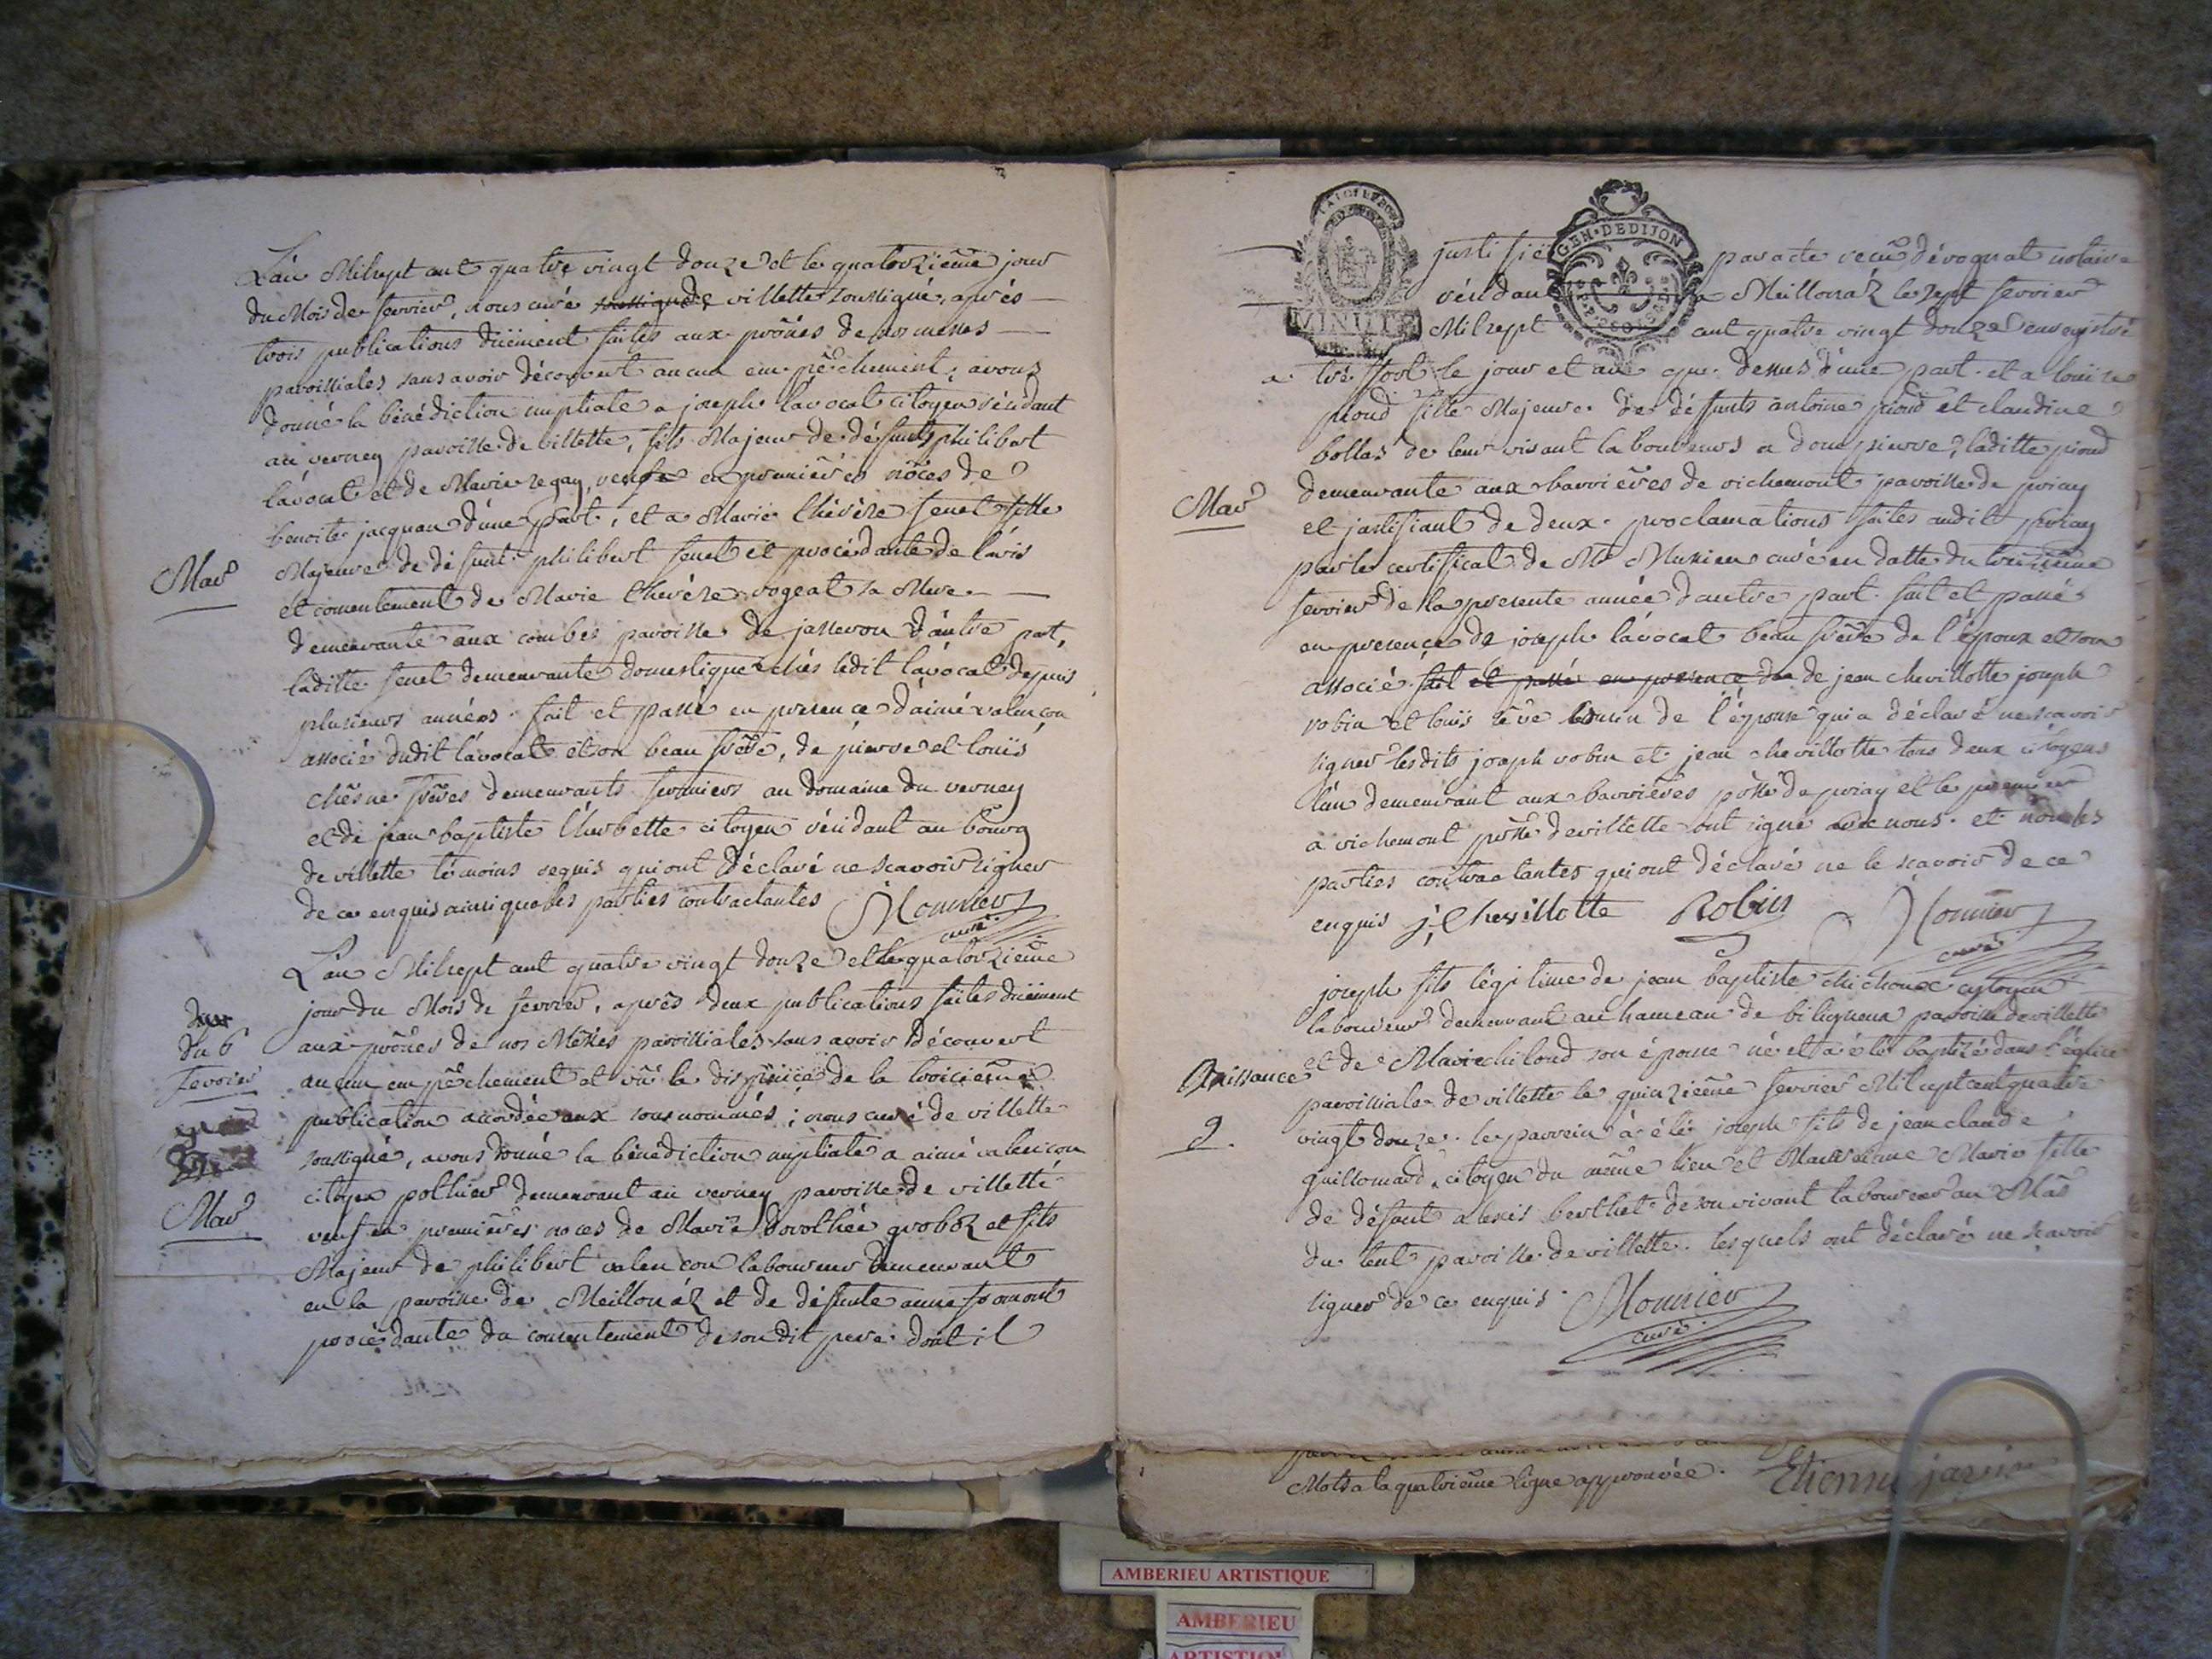 L'an Milsept cent quatre vingt douze et le quatorzième jour
du Mois de fevrier, nous curé de villette soussigné, après
trois publications düement faites aux prônes de nos messes
paroissiales sans avoir découvert aucun empêchement, avons
donné la bénédiction nuptiale a joseph lavocat citoyen résidant
au verney paroisse de villette, fils Majeur de défunts philibert
lavocat et de Marie regay, veuf en premières nôces de
benoite jacquan d'une part, et a Marie thérèse fenet fille
Majeure de défunt philibert fenet et procédante de l'avis
et consentement de Marie thérèse vogeat sa Mere
demeurante aux combes paroisse de jasseron d'autre part,
laditte fenet demeurante domestique chés ledit lavocat depuis
plusieurs années. fait et passé en presence d'aimé valençon
associé dudit lavocat et son beau frère, de pierre et louïs
chêsne frères demeurants fermiers au domaine du verney
et de jean baptiste l'herbette citoyen résidant au bourg
de villette témoins requis qui ont déclaré ne scavoir signer
de ce enquis ainsi que les parties contractantes Monnier
curé
Mar
L'an Milsept cent quatre vingt douze et le quatorzieme
jour du Mois de fevrier, après deux publications faites düement
aux prônes de nos Messes paroissiales sans avoir découvert
aucun empêchement et vû la dispense de la troisième
publication accordée aux sousnommés; nous curé de villette
soussigné, avons donné la bénédiction nuptiale a aimé valençon
citoyen demeurant au verney paroisse de villette
veuf en premières noces de Marie dorothée groboz et fils
Majeur de philibert valençon laboureur demeurant
en la paroisse de Meillonáz et de défunte anne fromont
procédante du consentement de son dit pere dont il
du 6
fevrier
Mar
GEN. DE DIJON
MINUTE
justifié par acte recu dévognat notaire
résidant a Meillonáz le sept fevrier
Milsept cent quatre vingt douze enregistré
le jour et an que dessus d'une part. et a louïse
pioud fille Majeure de défunts antoine pioud et claudine
bollas de leur vivant laboureurs a dompierre, laditte pioud
demeurante aux barrières de richemont paroisse de priay
et justifiant de deux proclamations faites audit priay
par le certificat de Mr curé en datte du treizième
fevrier de la presente année d'autre part. fait et passé
en presence de joseph lavocat beau frère de l'époux et son
associé fait et passé en presence de de jean chevillotte joseph
robin et louïs cousin de l'épouse qui a déclaré ne scavoir
signer lesdits joseph robin et jean chevillotte tous deux citoyens
l'un demeurant aux barrières psse de priay et le premier
a richemont psse de villette ont signé avec nous. et non les
parties contractantes qui ont déclaré ne le scavoir de ce
enquis j. Chevillotte Robin Monnier
curé
Mar
joseph fils légitime de jean baptiste Michoux citoyen
laboureur demeurant au hameau de biligneux paroisse de villette
et de Marie chiloud son épouse né et a été baptizé dans l'église
paroissiale de villette le quinzième fevrier Milsept cent quatre
vingt douze. le parrein a été joseph fils de jean claude
guillomard citoyen du même lieu et Marreinne Marie fille
de défunt alexis berthet de son vivant laboureur au Mas
du tent paroisse de villette. lesquels ont déclaré ne scavoir
signer de ce enquis. Monnier
curé
Naissance
2.
Mots a la quatrieme ligne approuvée. Etienne jarvin
AMBERIEU ARTISTIQUE
AMBERIEU
ARTISTIQUE